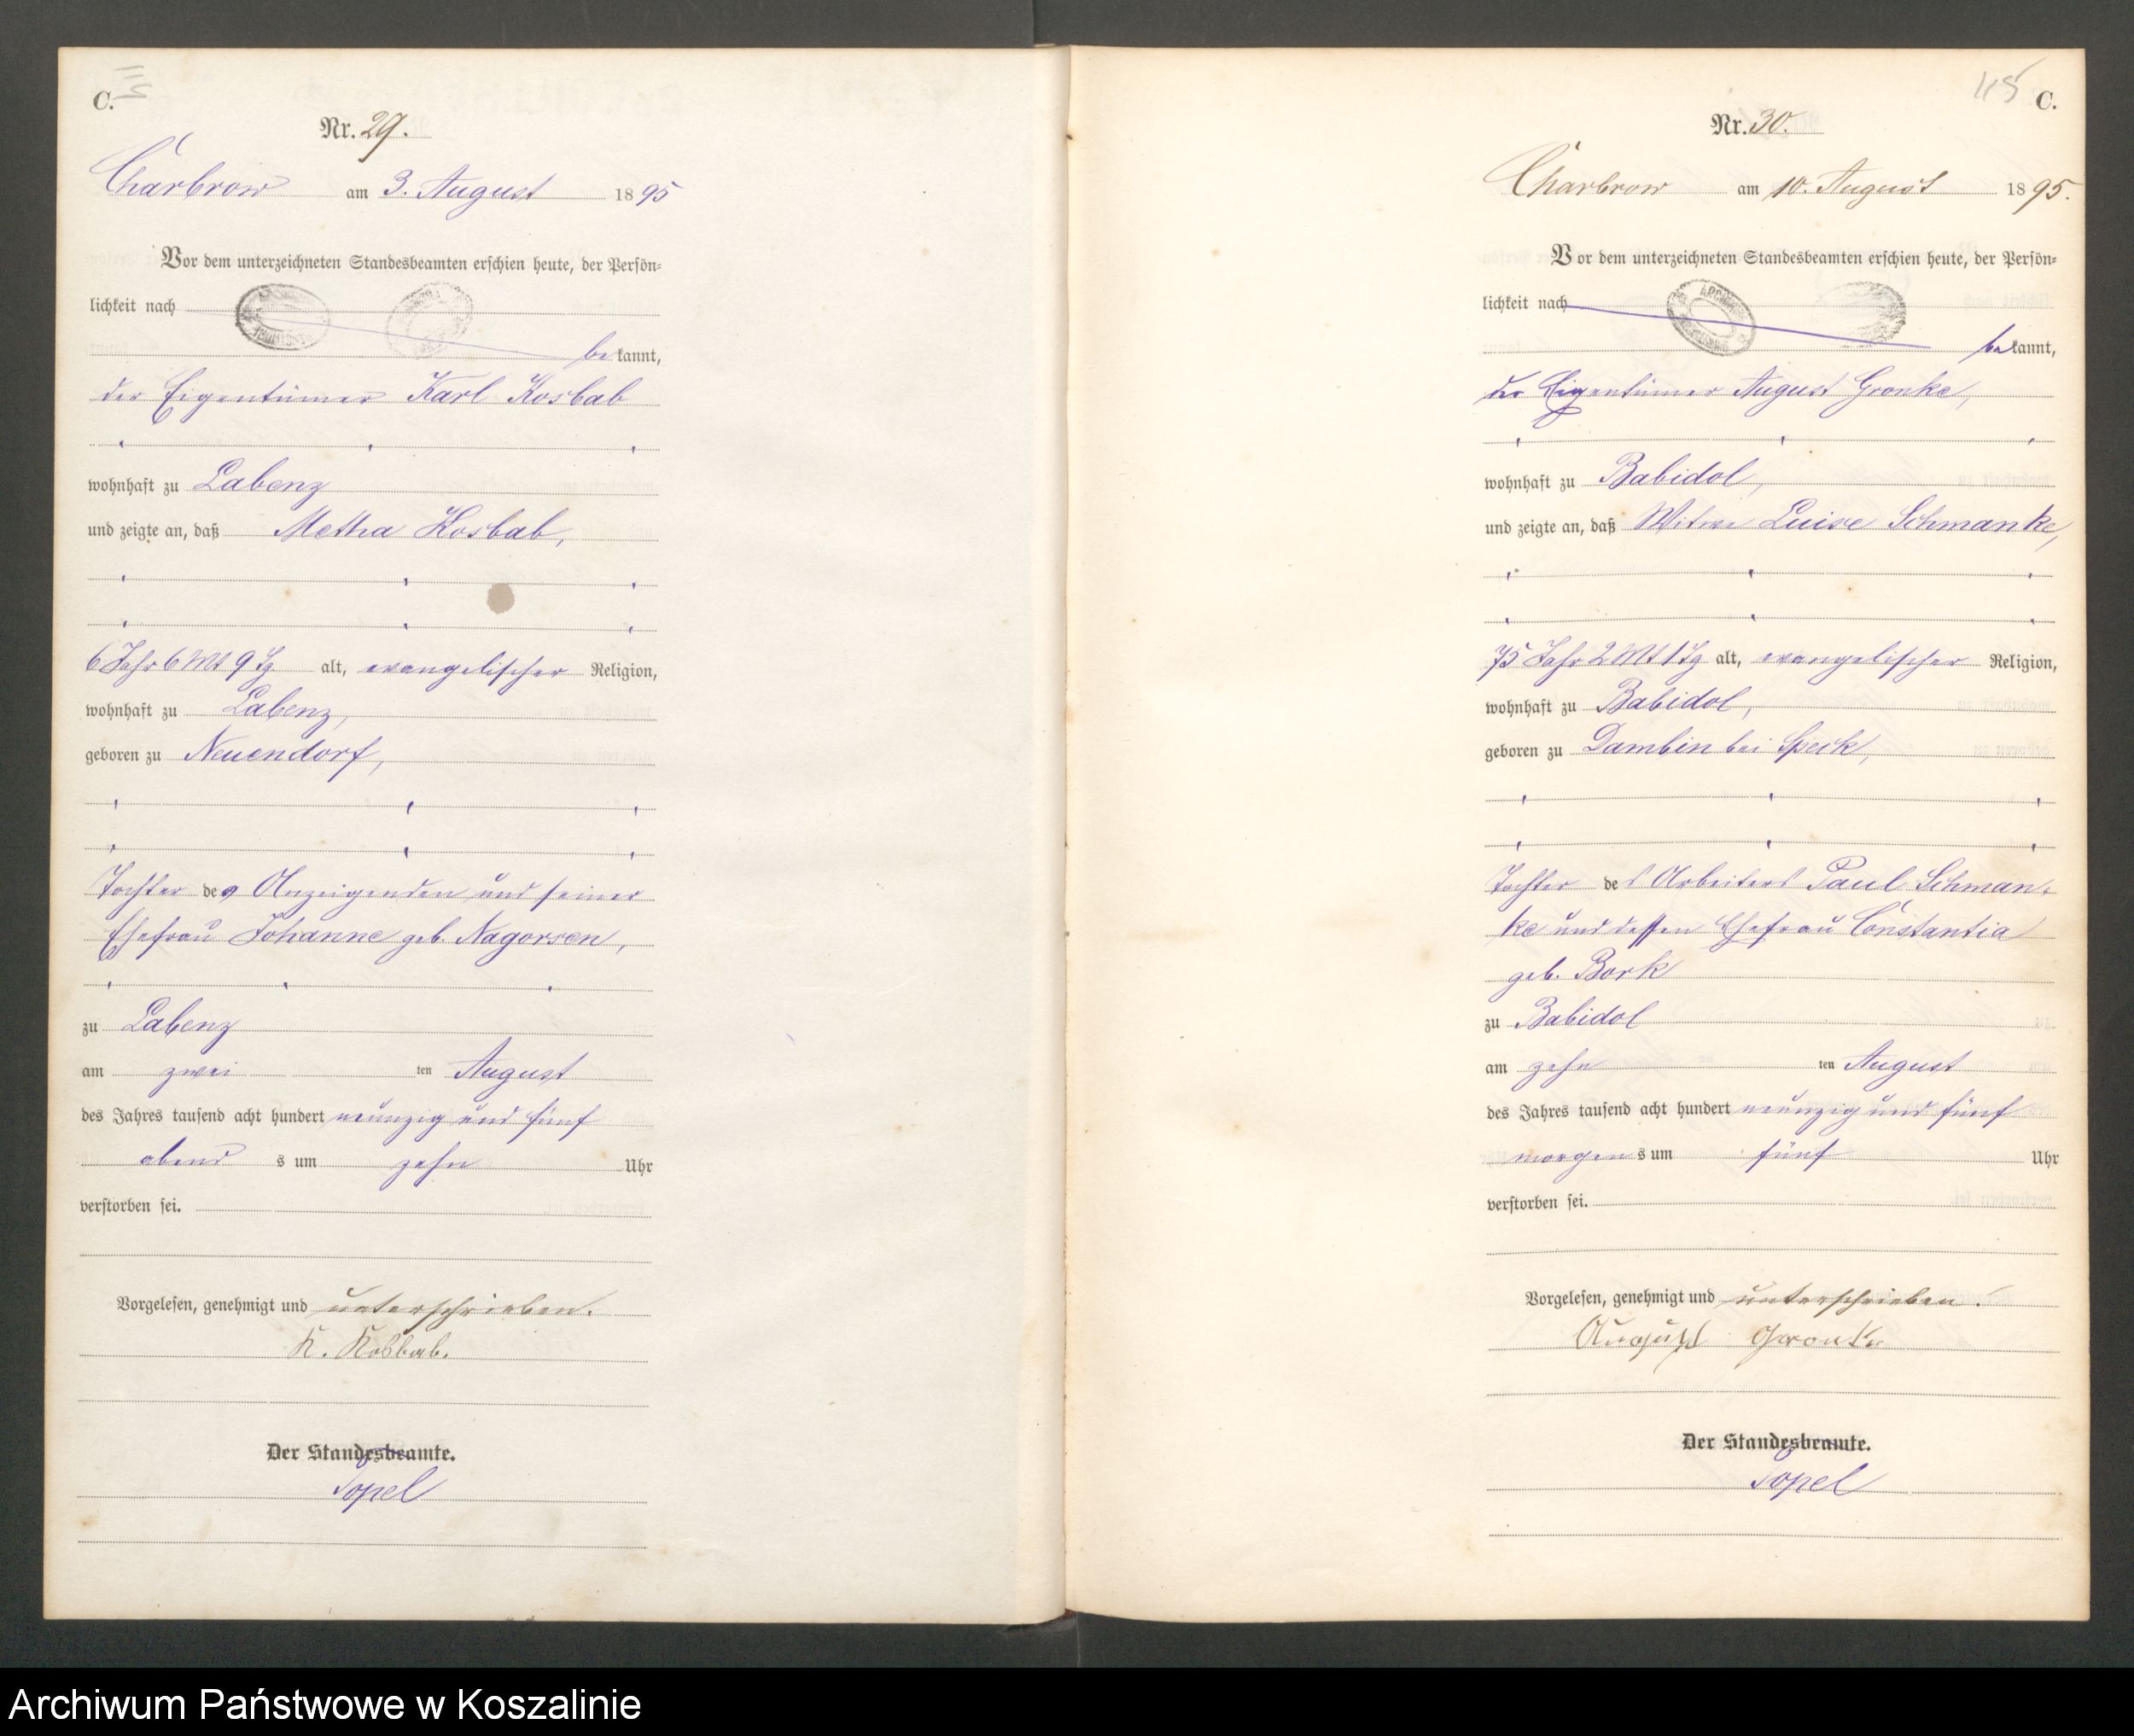 C.
Nr. 29.
Charbrow am 3. August 1895
Vor dem unterzeichneten Standesbeamten erschien heute, der Persön-
lichkeit nach
bekannt,
der Eigentümer Karl Kosbab
wohnhaft zu Labenz
und zeigte an, daß Metha Kosbab,
6 Jahr 6 Mt 9 Tg alt, evangelischer Religion,
wohnhaft zu Labenz,
geboren zu Neuendorf,
Tochter des Anzeigenden und seiner
Ehefrau Johanne geb. Nagorsen,
zu Labenz
am zwei ten August
des Jahres tausend acht hundert neunzig und fünf
abend s um zehn Uhr
verstorben sei.
Vorgelesen, genehmigt und unterschrieben.
K. Kosbab.
Der Standesbeamte.
Topel
115 C.
Nr. 30.
Charbrow am 10. August 1895.
Vor dem unterzeichneten Standesbeamten erschien heute, der Persön-
lichkeit nach
bekannt,
der Eigentümer August Gronke,
wohnhaft zu Babidol,
und zeigte an, daß Witwe Luise Schmanke,
75 Jahr 2 Mt 1 Tg alt, evangelischer Religion,
wohnhaft zu Babidol,
geboren zu Dambin bei Speck,
Tochter des Arbeiters Paul Schman-
ke und dessen Ehefrau Constantia
geb. Bork
zu Babidol
am zehn ten August
des Jahres tausend acht hundert neunzig und fünf
morgen s um fünf Uhr
verstorben sei.
Vorgelesen, genehmigt und unterschrieben.
August Gronke
Der Standesbeamte.
Topel
Archiwum Państwowe w Koszalinie